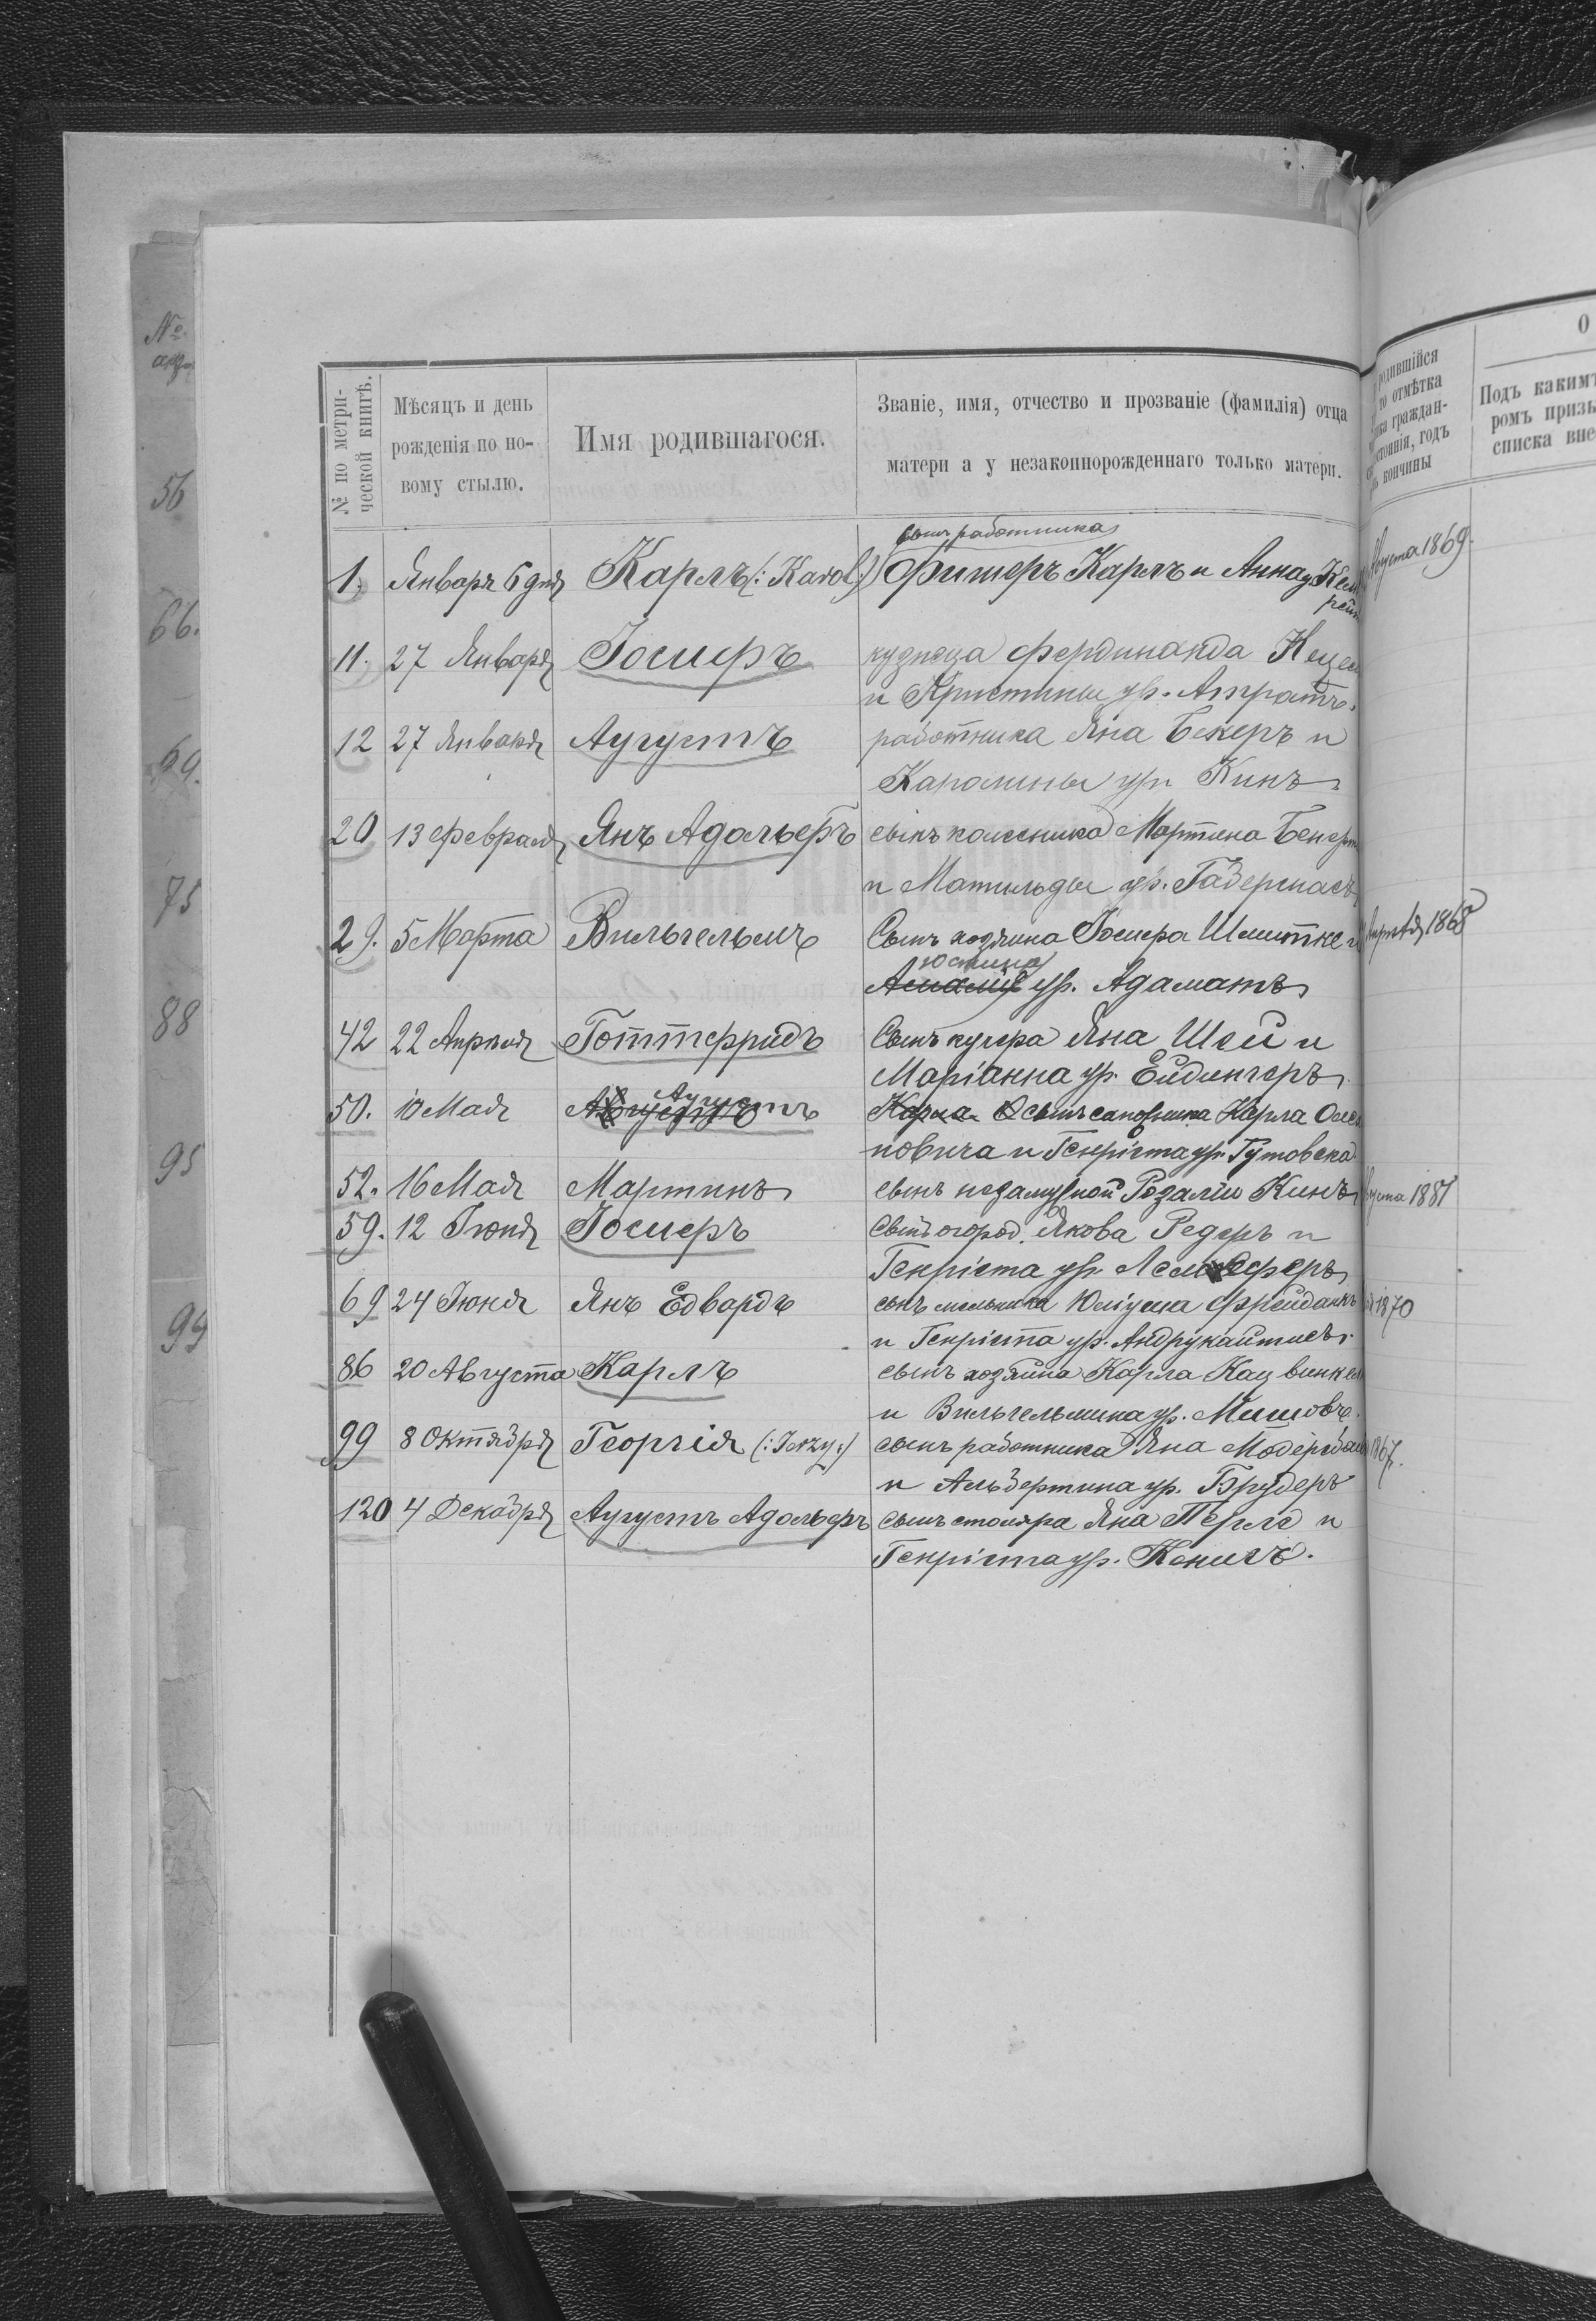 №
56
66.
69.
75
88
95
99
№ по метри-
ческой книгѣ.
Мѣсяцъ и день
рожденія по но-
вому стылю.
Имя родившагося.
Званіе, имя, отчество и прозваніе (фамилія) отца
матери а у незаконнорожденнаго только матери.
родившійся
то отмѣтка
граждан-
стоянія, годъ
кончины
О
Подъ какимъ
ромъ призы
списка вне
сынъ работника
1. Январ 6 дня Карлъ (: Karol :) Фишеръ Карлъ и Анна
густа 1869.
11. 27 Января Іосифъ кузнеца Фердинанда
и Кристины ур.
12 27 Января Аугустъ работника Яна Бекеръ и
Каролины ур Кинъ
20 13 Февраля Янъ Адольфъ сынъ колесника Мартина
и Матильды ур.
29. 5 Марта Вильгельмъ Сынъ хозяина Іосифа Шмитке и
Апрѣля 1868
Юстина
Амалія ур. Адаматъ
42 22 Апрѣля Готтфридъ Сынъ кучера Яна Шей и
Маріанна ур. Ейдингеръ
50. 10 Мая Аугустъ сынъ садовника Карла
новича и Генріета ур. Гутовска
52. 16 Мая Мартинъ сынъ незамужной Розаліи Кинъ
густа 1881
59. 12 Іюня Іосифъ Сынъ огород. Якова Редеръ и
Генріета ур.
69 24 Іюня Янъ Едвардъ сынъ мельника Юліуша Фрейданкъ
1870
и Генріета ур. Андрукайтисъ.
86 20 Августа Карлъ сынъ хозяина Карла
и Вильгельмина ур.
99 8 Октября Георгія (: Jerzy :) сынъ работника Яна
1867.
и Альбертина ур. Брудеръ
120 4 Декабря Аугустъ Адольфъ сынъ столяра Яна Перле и
Генріета ур. Конигъ.